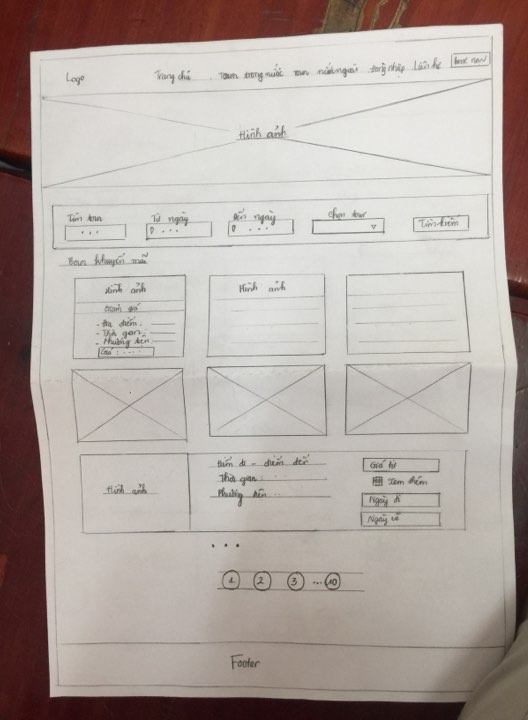 Logo Trang chủ Tour trong nước Tour nước ngoài Đăng nhập Liên hệ Book now
Hình ảnh
Tìm tour Từ ngày Đến ngày Chọn tour
... ... ... Tìm kiếm
Tour khuyến mãi
Hình ảnh Hình ảnh
Giảm giá
- Địa điểm:
- Thời gian:
- Phương tiện:
Giá: ....
Hình ảnh
Điểm đi - điểm đến
Thời gian:
Phương tiện:
Giá từ
Xem thêm
Ngày đi
Ngày về
...
1 2 3 ... 10
Footer